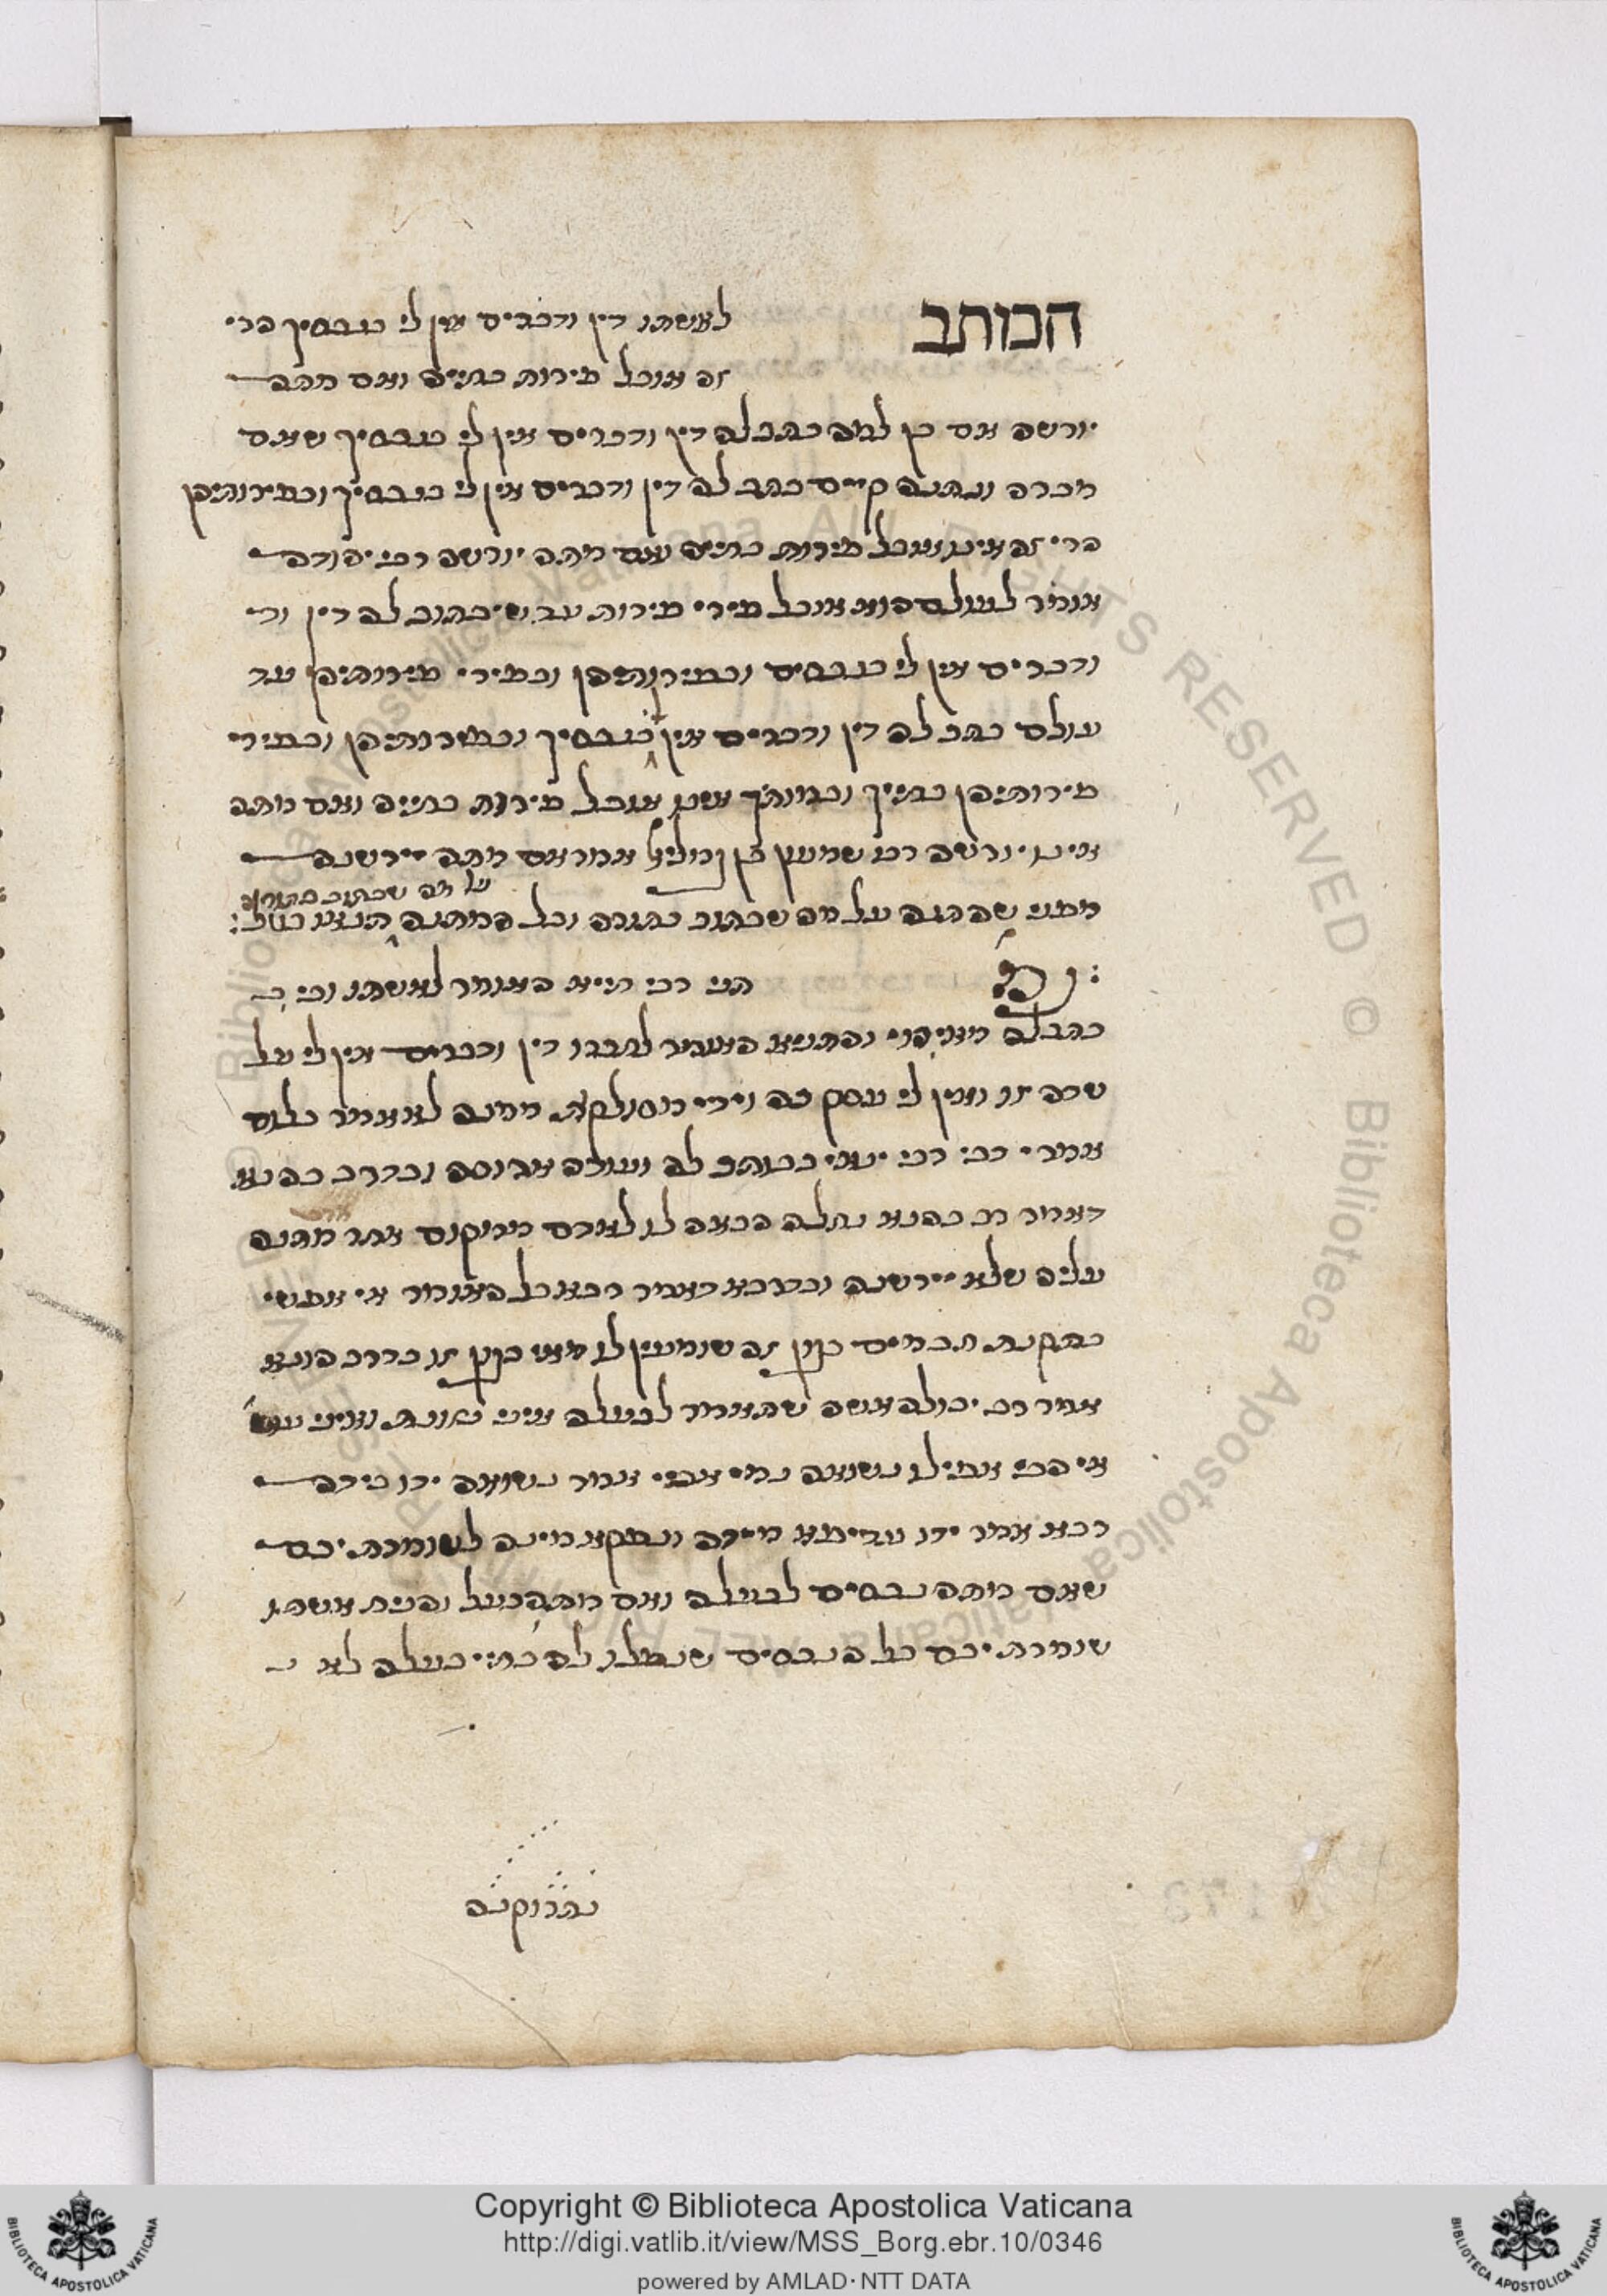 הכותב לאשתו דין ודברים אין לי בנכסיך הרי
זה אוכל פירות בחייה ואם מתה
יורשה אם כן למה כתב לה דין ודברים אין לי בנכסיך שאם
מכרה ונתנה קיים כתב לה דין ודברים אין לי בנכסיך ובפירותיהן
הרי זה אינו אוכל פירות בחייה ואם מתה יורשה רבי יהודה
אומר לעולם הוא אוכל פירי פירות עד שיכתוב לה דין וד
ודברים אין לי בנכסים ובפירותיהן ובפירי פירותיהן עד
עולם כתב לה דין ודברים אין לי בנכסיך ובפירותיהן ובפירי
פירותיהן בחייך ובמותך אינו אוכל פירות בחייה ואם מתה
אינו יורשה רבן שמעון בן גמליאל אמר אם מתה יירשנה
על מה שכתוב בתורה
מפני שהתנה על מה שכתוב בתורה וכל המתנה תנאו בטל:
גמ׳ תני רבי חייא האומר לאשתו וכי כ
כתב לה מאי הוי והתניא האומר לחברו דין ודברים אין לי על
שדה זו ואין לי עסק בה וידי מסולקת ממנה לא אמר כלום
אמרי דבי רבי ינאי בכותב לה ועודה ארוסה וכדרב כהנא
דאמר רב כהנא נחלה הבאה לו לאדם ממקום אחר מתנה
עליה שלא יירשנה וכדרבא דאמר רבא כל האומר אי אפשי
בתקנת חכמים כגון זה שומעין לו מאי כגון זו כדרב הונא
אמר רב יכולה אשה שתאמר לבעלה איני ניזונת ואיני עושה
אי הכי אפילו נשואה נמי אביי אמר נשואה ידו כידה
רבא אמר ידו עדיפא מידה ונפקא מינה לשומרת יבם
שאם מתה נכסים לבעלה ואם מת הבעל והניח אשתו
שומרת יבם כל הנכסים שנפלו לה כתי בעלה לא נ
נתרוקנה
Copyright © Biblioteca Apostolica Vaticana
http://digi.vatlib.it/view/MSS_Borg.ebr.10/0346
powered by AMLAD · NTT DATA